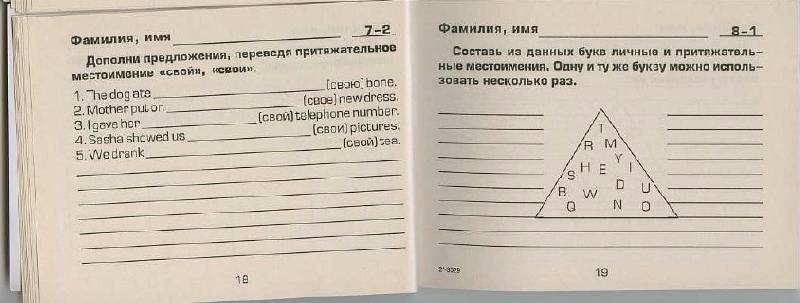 Фамилия, имя 7-2
Дополни предложения, переведя притяжательное
местоимение «свой», «свои».
1. The dog ate (свою) bone.
2. Mother put on (свое) new dress.
3. I gave her (свой) telephone number.
4. Sasha showed us (свои) pictures.
5. We drank (свой) tea.
18
Фамилия, имя 8-1
Составь из данных букв личные и притяжатель-
ные местоимения. Одну и ту же букву можно исполь-
зовать несколько раз.
T
R M
Y
S H E I
B W D U
O N O
19